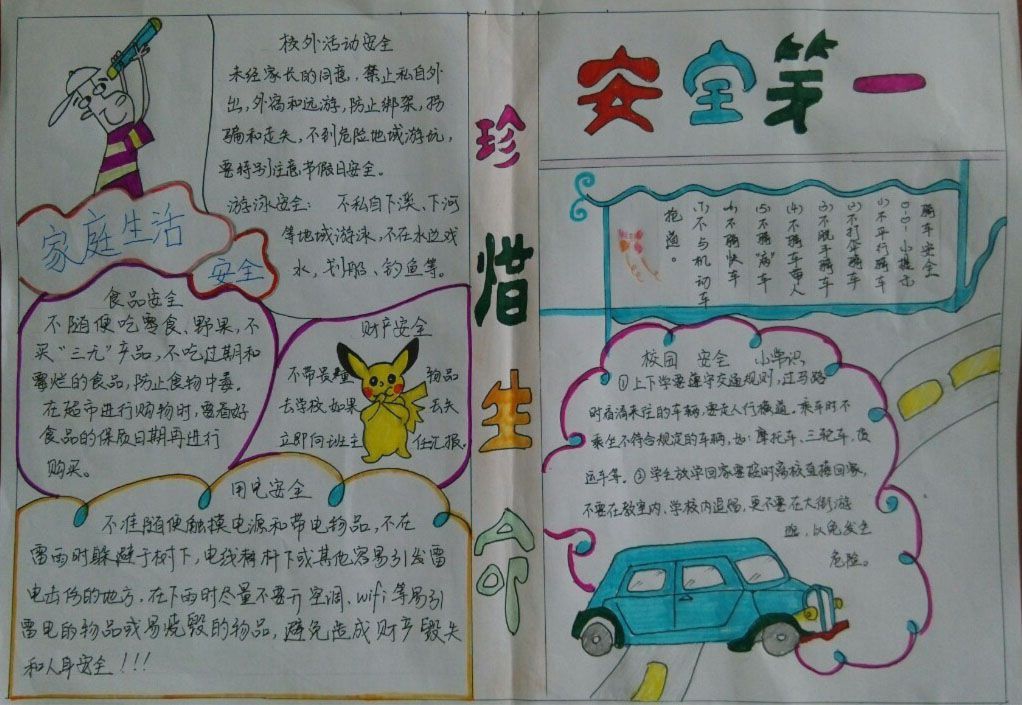 安全第一
珍惜生命
校外活动安全
未经家长的同意，禁止私自外
出，外宿和远游，防止绑架，拐
骗和走失，不到危险地域游玩，
要特别注意节假日安全。
游泳安全： 不私自下溪、下河
等地域游泳，不在水边戏
水，划船、钓鱼等。
家庭生活
安全
食品安全
不随便吃零食、野果，不
买“三无”产品，不吃过期和
霉烂的食品，防止食物中毒。
在超市进行购物时，要看好
食品的保质日期再进行
购买。
财产安全
不带贵重 物品
去学校，如果 丢失
立即向班主 任汇报。
用电安全
不准随便触摸电源和带电物品，不在
雷雨时躲避于树下，电线杆下或其他容易引发雷
电击伤的地方，在下雨时尽量不要开空调、wifi等易引
雷电的物品或易烧毁的物品，避免造成财产毁失
和人身安全！！！
骑车安全
小提示
(1)不平行骑车
(2)不打伞骑车
(3)不脱手骑车
(4)不骑车带人
(5)不骑“病”车
(6)不骑快车
(7)不与机动车
抢道。
校园 安全 小常识
①上下学要遵守交通规则，过马路
时看清来往的车辆，要走人行横道。乘车时不
乘坐不符合规定的车辆，如：摩托车、三轮车、
②学生放学回家要按时离校直接回家，
不要在教室内、学校内追赶，更不要在大街游
，以免发生
危险。